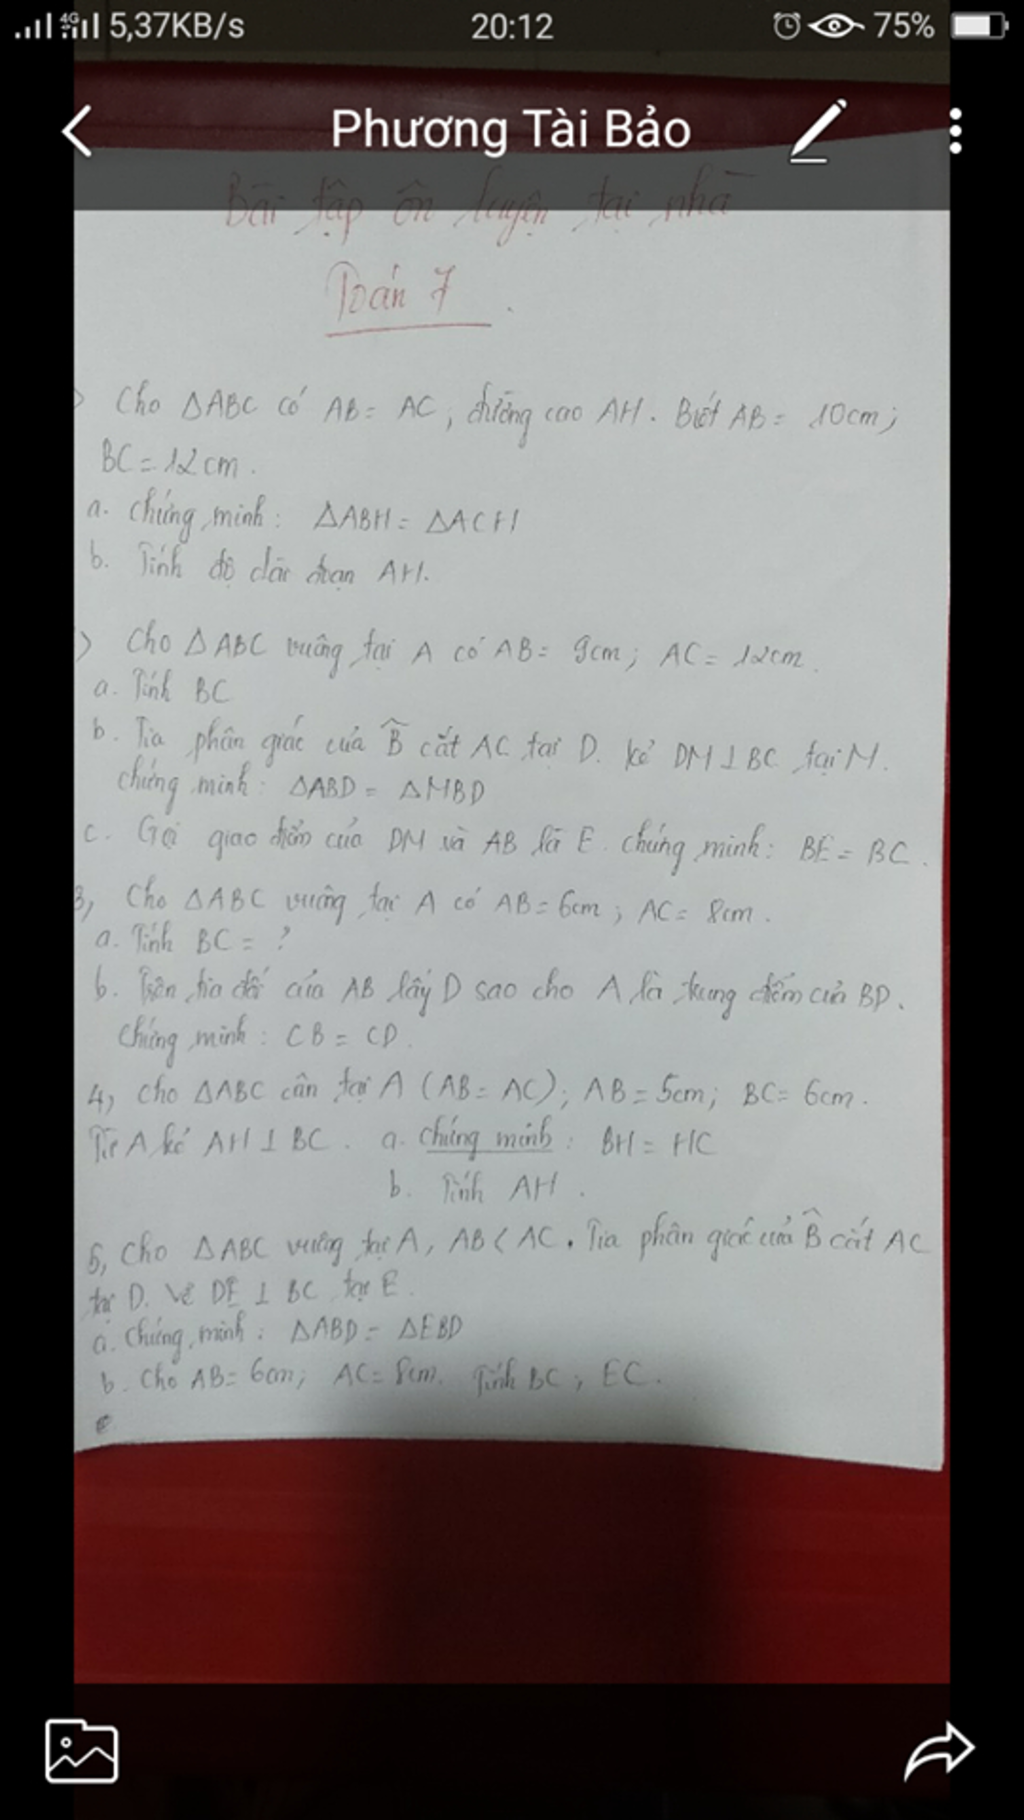 5,37KB/s 20:12 75%
Phương Tài Bảo
Bài tập ôn luyện tại nhà
Toán 7
Cho ΔABC có AB = AC, đường cao AH. Biết AB = 10cm;
BC = 12cm.
a. Chứng minh: ΔABH = ΔACH
b. Tính độ dài đoạn AH.
) Cho ΔABC vuông tại A có AB = 9cm; AC = 12cm.
a. Tính BC
b. Tia phân giác của B̂ cắt AC tại D. kẻ DM ⊥ BC tại M.
chứng minh: ΔABD = ΔMBD
c. Gọi giao điểm của DM và AB là E. chứng minh: BE = BC.
3, Cho ΔABC vuông tại A có AB = 6cm; AC = 8cm.
a. Tính BC = ?
b. Trên tia đối của AB lấy D sao cho A là trung điểm của BD.
Chứng minh: CB = CD.
4, Cho ΔABC cân tại A (AB = AC); AB = 5cm; BC = 6cm.
Từ A kẻ AH ⊥ BC. a. chứng minh: BH = HC
b. Tính AH.
5, Cho ΔABC vuông tại A, AB < AC. Tia phân giác của B̂ cắt AC
tại D. Vẽ DE ⊥ BC tại E.
a. Chứng minh: ΔABD = ΔEBD
b. Cho AB = 6cm; AC = 8cm. Tính BC; EC.